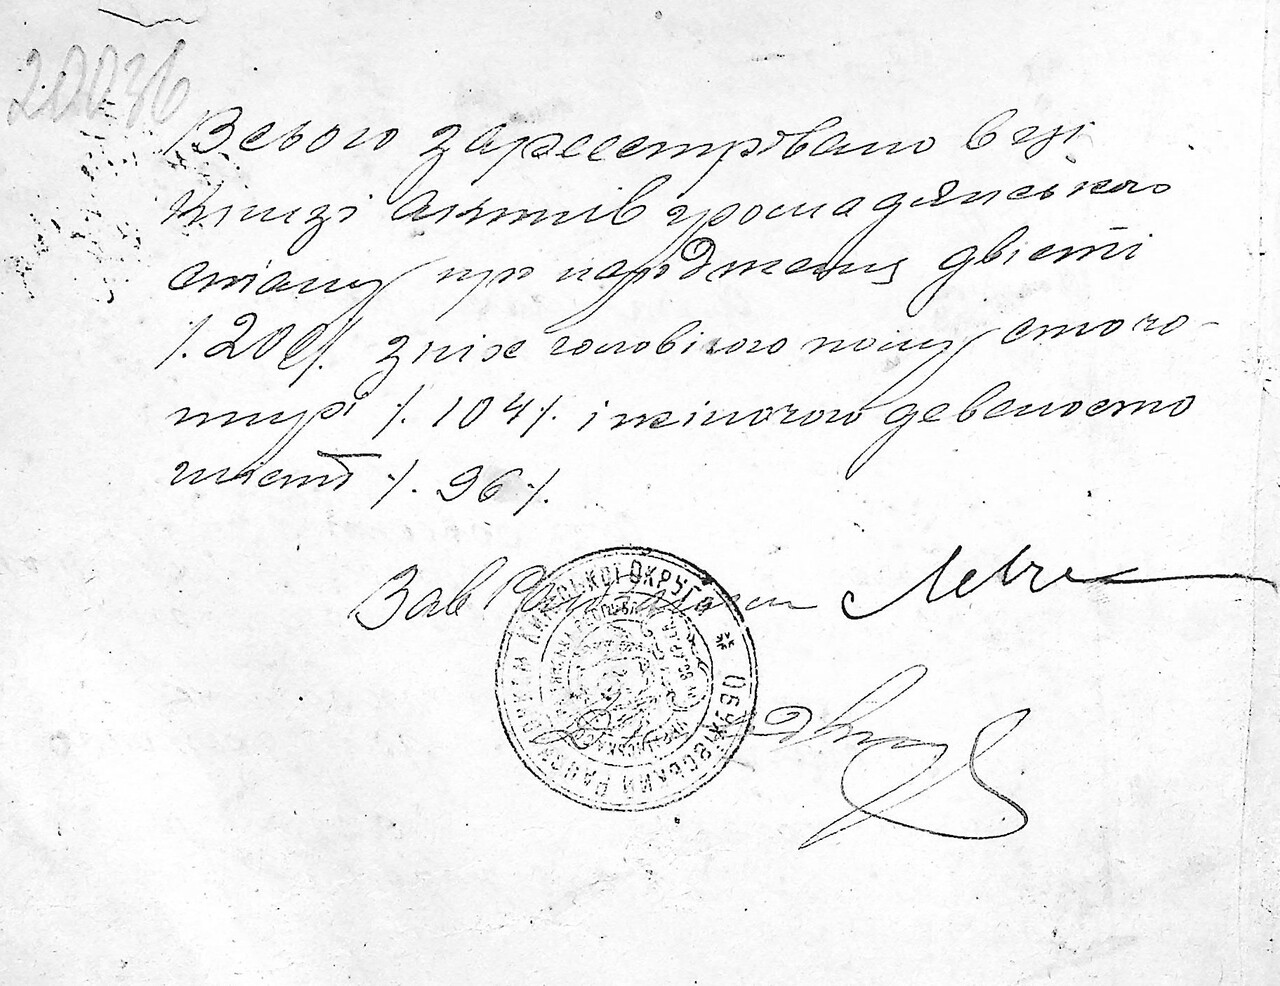 20036
Всього зареестровано в цій
Книзі Актів громадянського
стану про народження двісті
/.200/. з них чоловічого полу сто чо-
тирі /. 104/. і жіночого девеносто
шість /. 96/.
Зав
ОБУХІВСЬКИЙ РАЙОН КИЇВСЬКОЇ ОКРУГИ